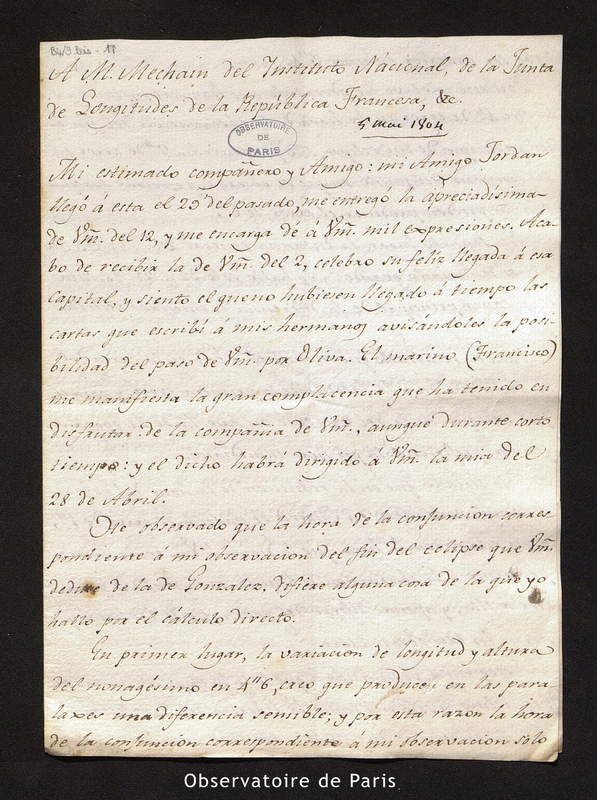 B4/9 bis - 17
A M. Mechain del Instituto Nacional, de la Junta
de Longitudes de la República Francesa, &c.
5 mai 1804
OBSERVATOIRE
DE
PARIS
Mi estimado compañero y Amigo: mi Amigo Jordan
llegó á esta el 29 del pasado, me entregó la apreciadísima
de Vm. del 12, y me encarga dé á Vm. mil expresiones. Aca-
bo de recibir la de Vm. del 2, celebro su feliz llegada á esa
Capital, y siento el que no hubiesen llegado á tiempo las
cartas que escribí á mis hermanos avisándoles la posi-
bilidad del paso de Vm. por Oliva. El marino (Francisco)
me manifiesta la gran complacencia que ha tenido en
disfrutar de la compañia de Vm., aunque durante corto
tiempo: y el dicho habrá dirigido á Vm. la mia del
28 de Abril.
He observado que la hora de la conjuncion corres
pondiente á mi observacion del fin del eclipse que Vm.
deduce de la de Gonzalez, difiere alguna cosa de la que yo
hallo por el cálculo directo.
En primer lugar, la variacion de longitud y altura
del nonagésimo en 4" 6, creo que produce en las para-
laxes una diferencia sensible; y por esta razon la hora
de la conjuncion correspondiente á mi observacion solo
Observatoire de Paris